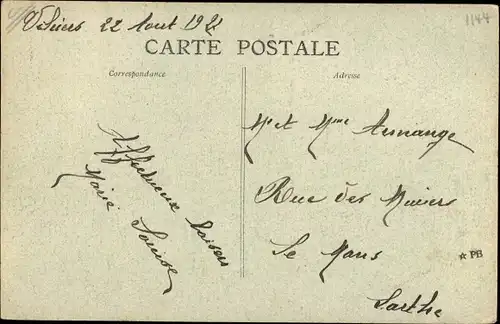 22 Aout 192
1144
CARTE POSTALE
Correspondance
Adresse
Affectueux baisers
Marie Louise
Mr et Mme
Rue des
Le Mans
Sarthe
★ PB